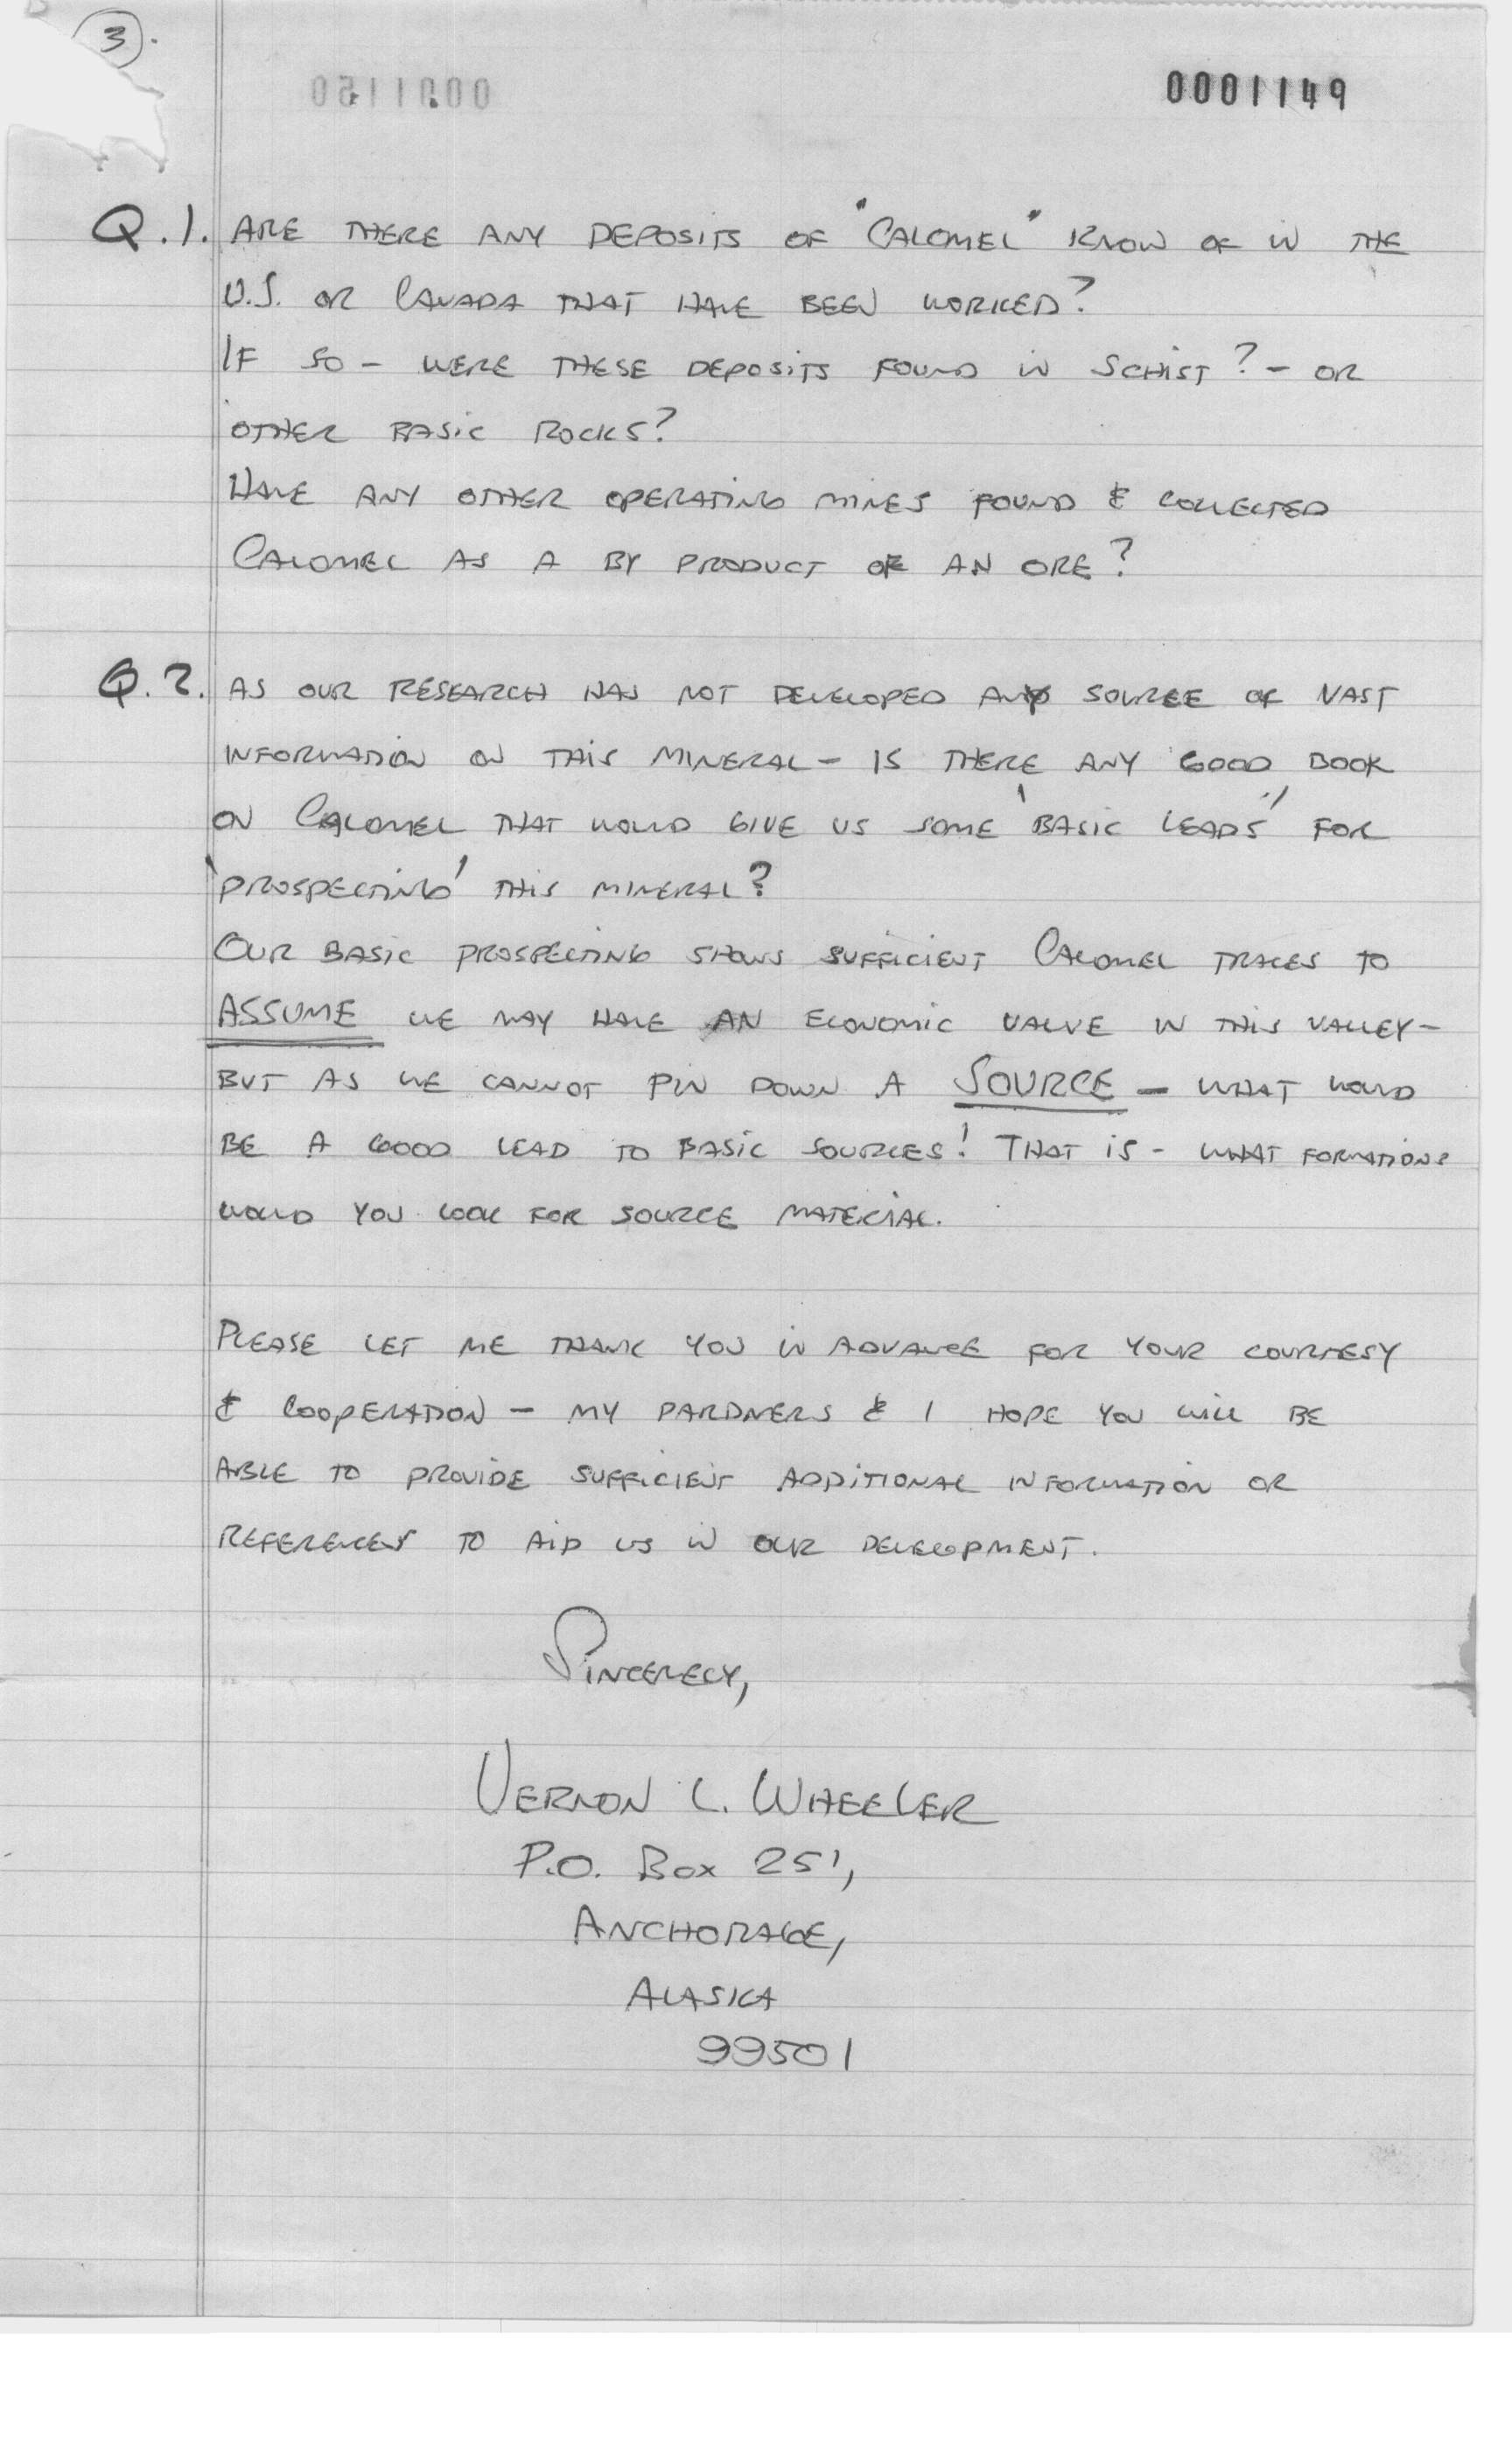 3.
0001150
0001149
Q.1. ARE THERE ANY DEPOSITS OF "CALOMEL" KNOW OF IN THE
U.S. OR CANADA THAT HAVE BEEN WORKED?
IF SO - WERE THESE DEPOSITS FOUND IN SCHIST? - OR
OTHER BASIC ROCKS?
HAVE ANY OTHER OPERATING MINES FOUND & COLLECTED
CALOMEL AS A BY PRODUCT OF AN ORE?
Q.2. AS OUR RESEARCH HAS NOT DEVELOPED ANY SOURCE OF VAST
INFORMATION ON THIS MINERAL - IS THERE ANY GOOD BOOK
ON CALOMEL THAT WOULD GIVE US SOME 'BASIC LEADS' FOR
'PROSPECTING' THIS MINERAL?
OUR BASIC PROSPECTING SHOWS SUFFICIENT CALOMEL TRACES TO
ASSUME WE MAY HAVE AN ECONOMIC VALUE IN THIS VALLEY -
BUT AS WE CANNOT PIN DOWN A SOURCE - WHAT WOULD
BE A GOOD LEAD TO BASIC SOURCES! THAT IS - WHAT FORMATIONS
WOULD YOU LOOK FOR SOURCE MATERIAL.
PLEASE LET ME THANK YOU IN ADVANCE FOR YOUR COURTESY
& COOPERATION - MY PARDNERS & I HOPE YOU WILL BE
ABLE TO PROVIDE SUFFICIENT ADDITIONAL INFORMATION OR
REFERENCES TO AID US IN OUR DEVELOPMENT.
SINCERELY,
VERNON L. WHEELER
P.O. BOX 251,
ANCHORAGE,
ALASKA
99501